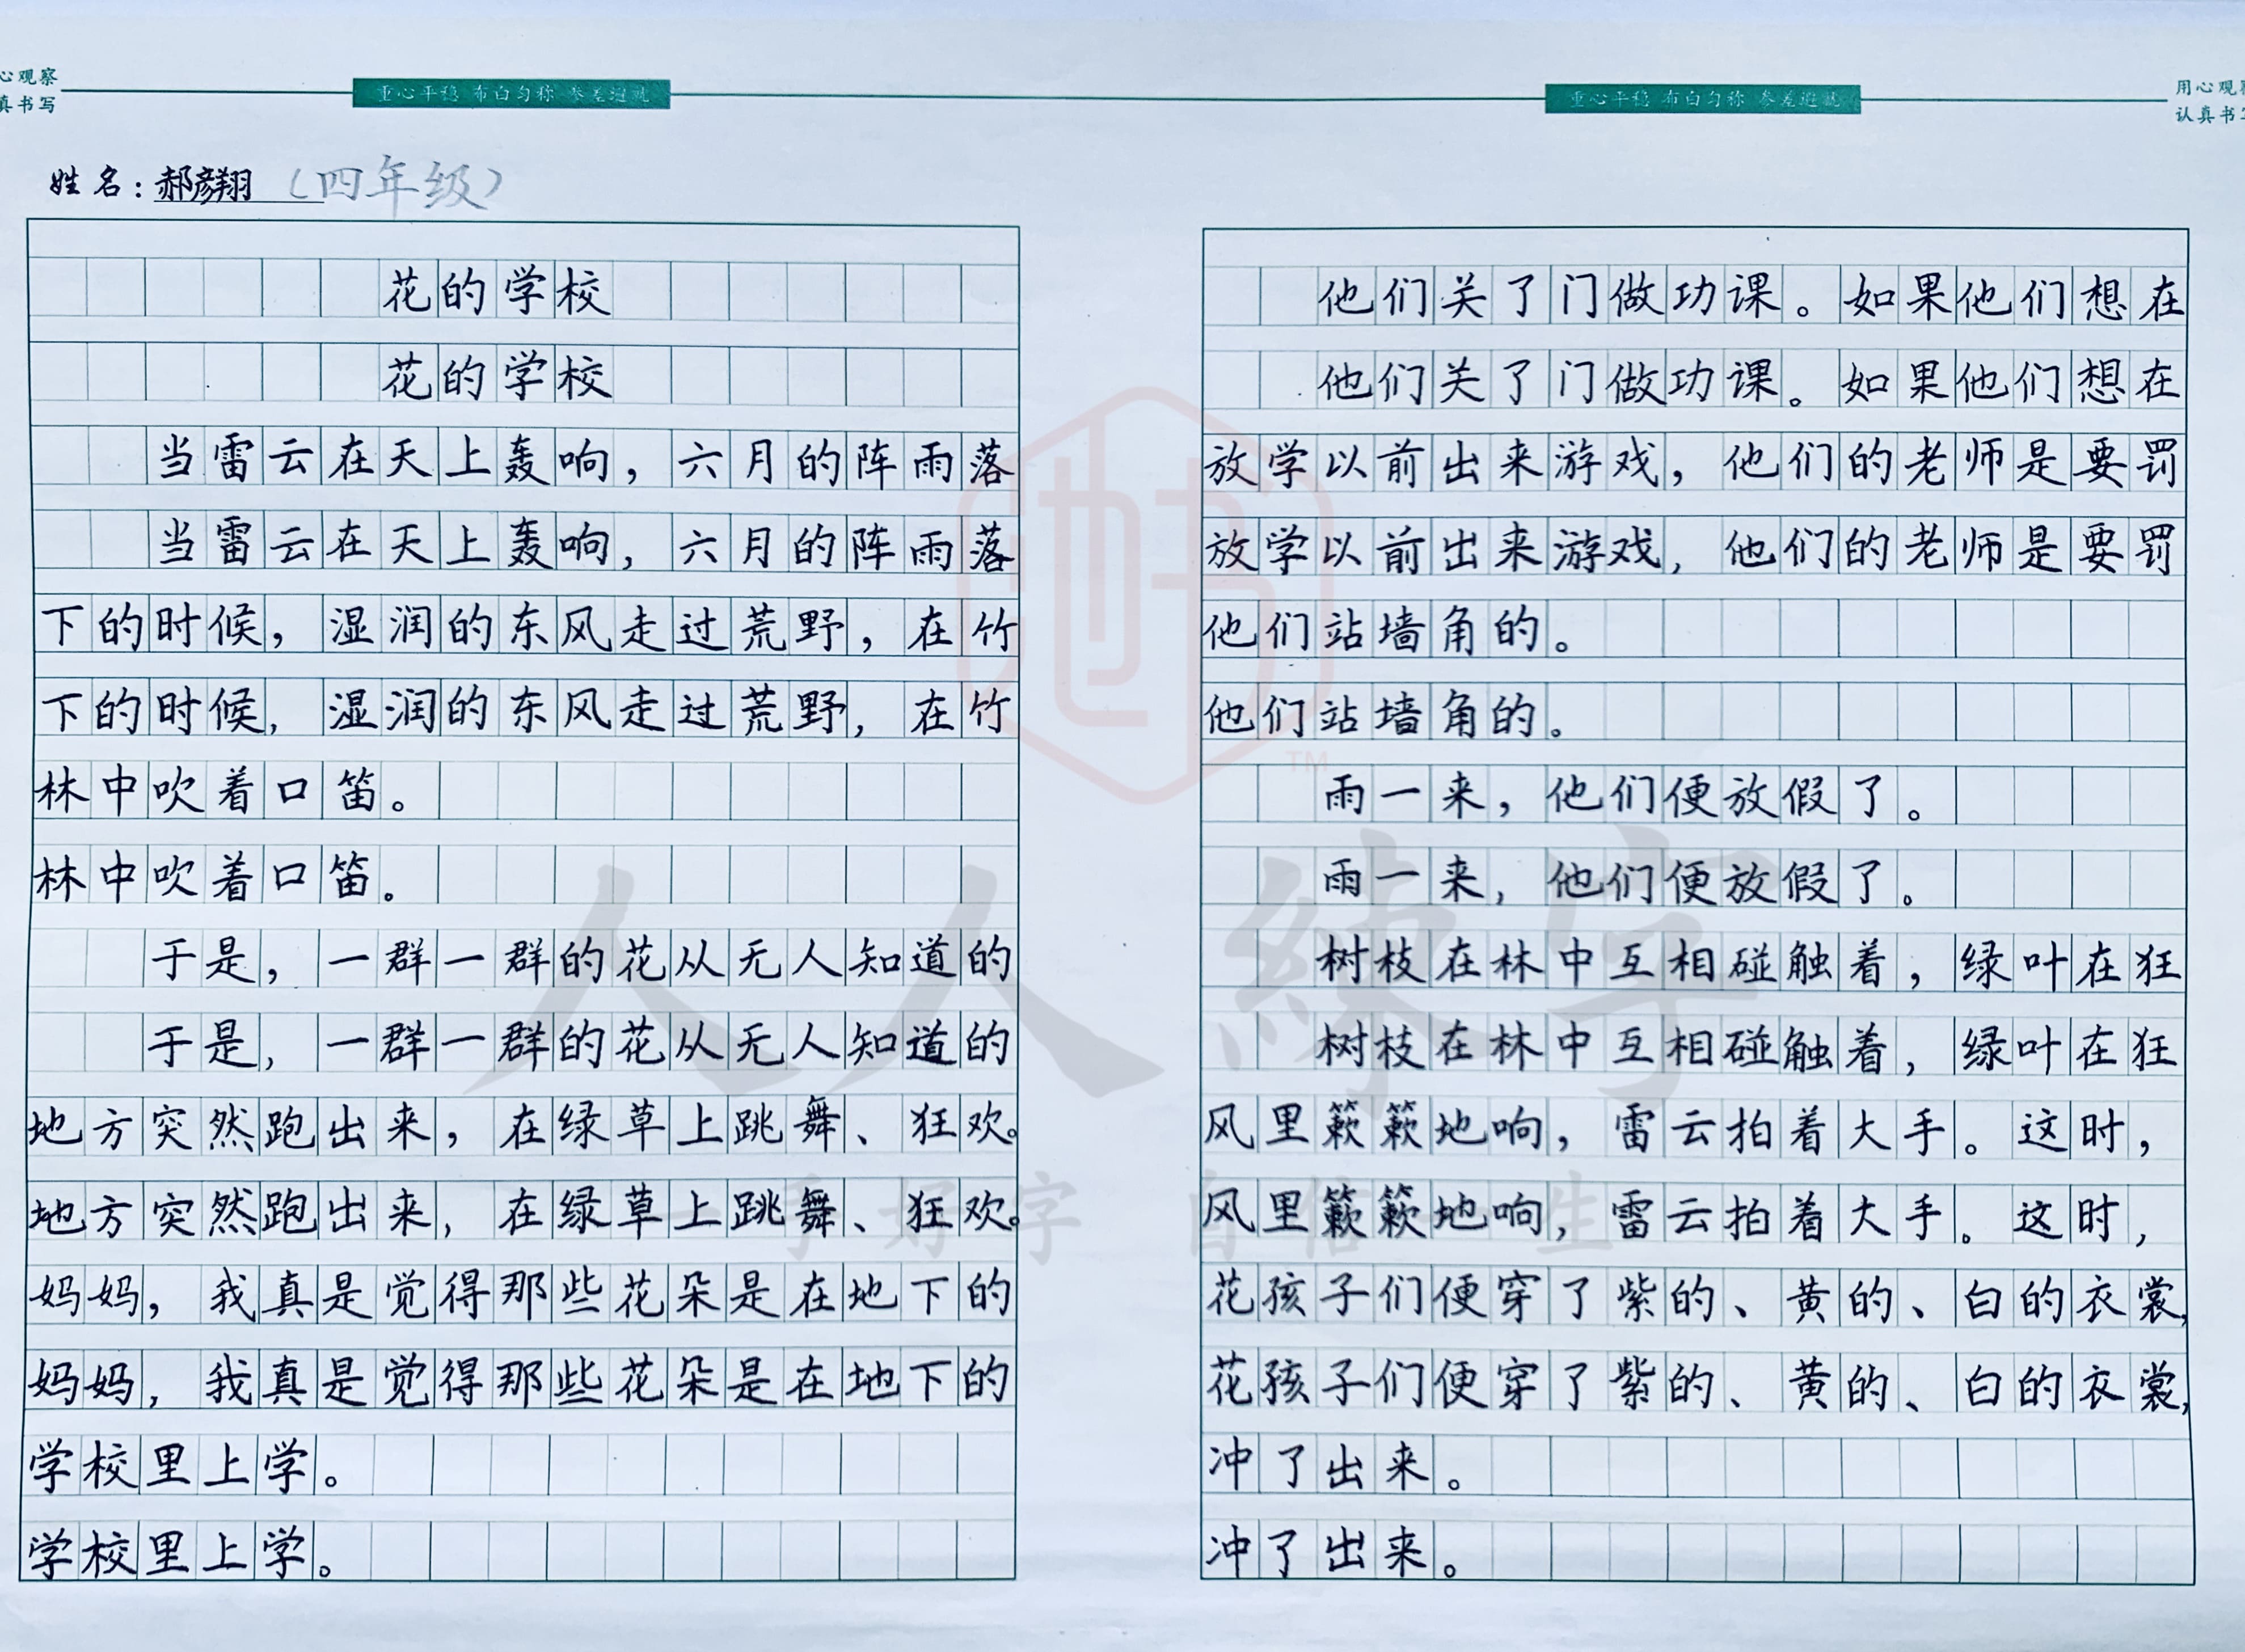 心观察
真书写
重心平稳 布白匀称 参差避就
姓名:郝彦翔 (四年级)
花的学校
花的学校
当雷云在天上轰响，六月的阵雨落
当雷云在天上轰响，六月的阵雨落
下的时候，湿润的东风走过荒野，在竹
下的时候，湿润的东风走过荒野，在竹
林中吹着口笛。
林中吹着口笛。
于是，一群一群的花从无人知道的
于是，一群一群的花从无人知道的
地方突然跑出来，在绿草上跳舞、狂欢。
地方突然跑出来，在绿草上跳舞、狂欢。
妈妈，我真是觉得那些花朵是在地下的
妈妈，我真是觉得那些花朵是在地下的
学校里上学。
学校里上学。
重心平稳 布白匀称 参差避就
用心观察
认真书写
他们关了门做功课。如果他们想在
他们关了门做功课。如果他们想在
放学以前出来游戏，他们的老师是要罚
放学以前出来游戏，他们的老师是要罚
他们站墙角的。
他们站墙角的。
雨一来，他们便放假了。
雨一来，他们便放假了。
树枝在林中互相碰触着，绿叶在狂
树枝在林中互相碰触着，绿叶在狂
风里簌簌地响，雷云拍着大手。这时，
风里簌簌地响，雷云拍着大手。这时，
花孩子们便穿了紫的、黄的、白的衣裳，
花孩子们便穿了紫的、黄的、白的衣裳，
冲了出来。
冲了出来。
TM
人人練字
一手好字 自信一生